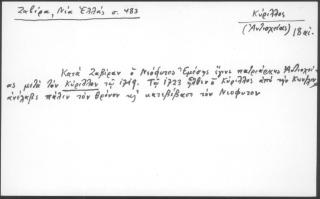 Ζαβίρα, Νέα Ἑλλάς σ. 483
Κύριλλος
(Ἀντιοχείας) 18 αἰ.
Κατὰ Ζαβίραν ὁ Νεόφυτος Ἐμέσης ἔγινε πατριάρχης Ἀντιοχεί-
ας μετὰ τὸν Κύριλλον τῷ 1719. Τῷ 1723 ἐλθὼν ὁ Κύριλλος ἀπὸ τὴν
ἀνέλαβε πάλιν τὸν θρόνον κ' κατεβίβασε τὸν Νεόφυτον